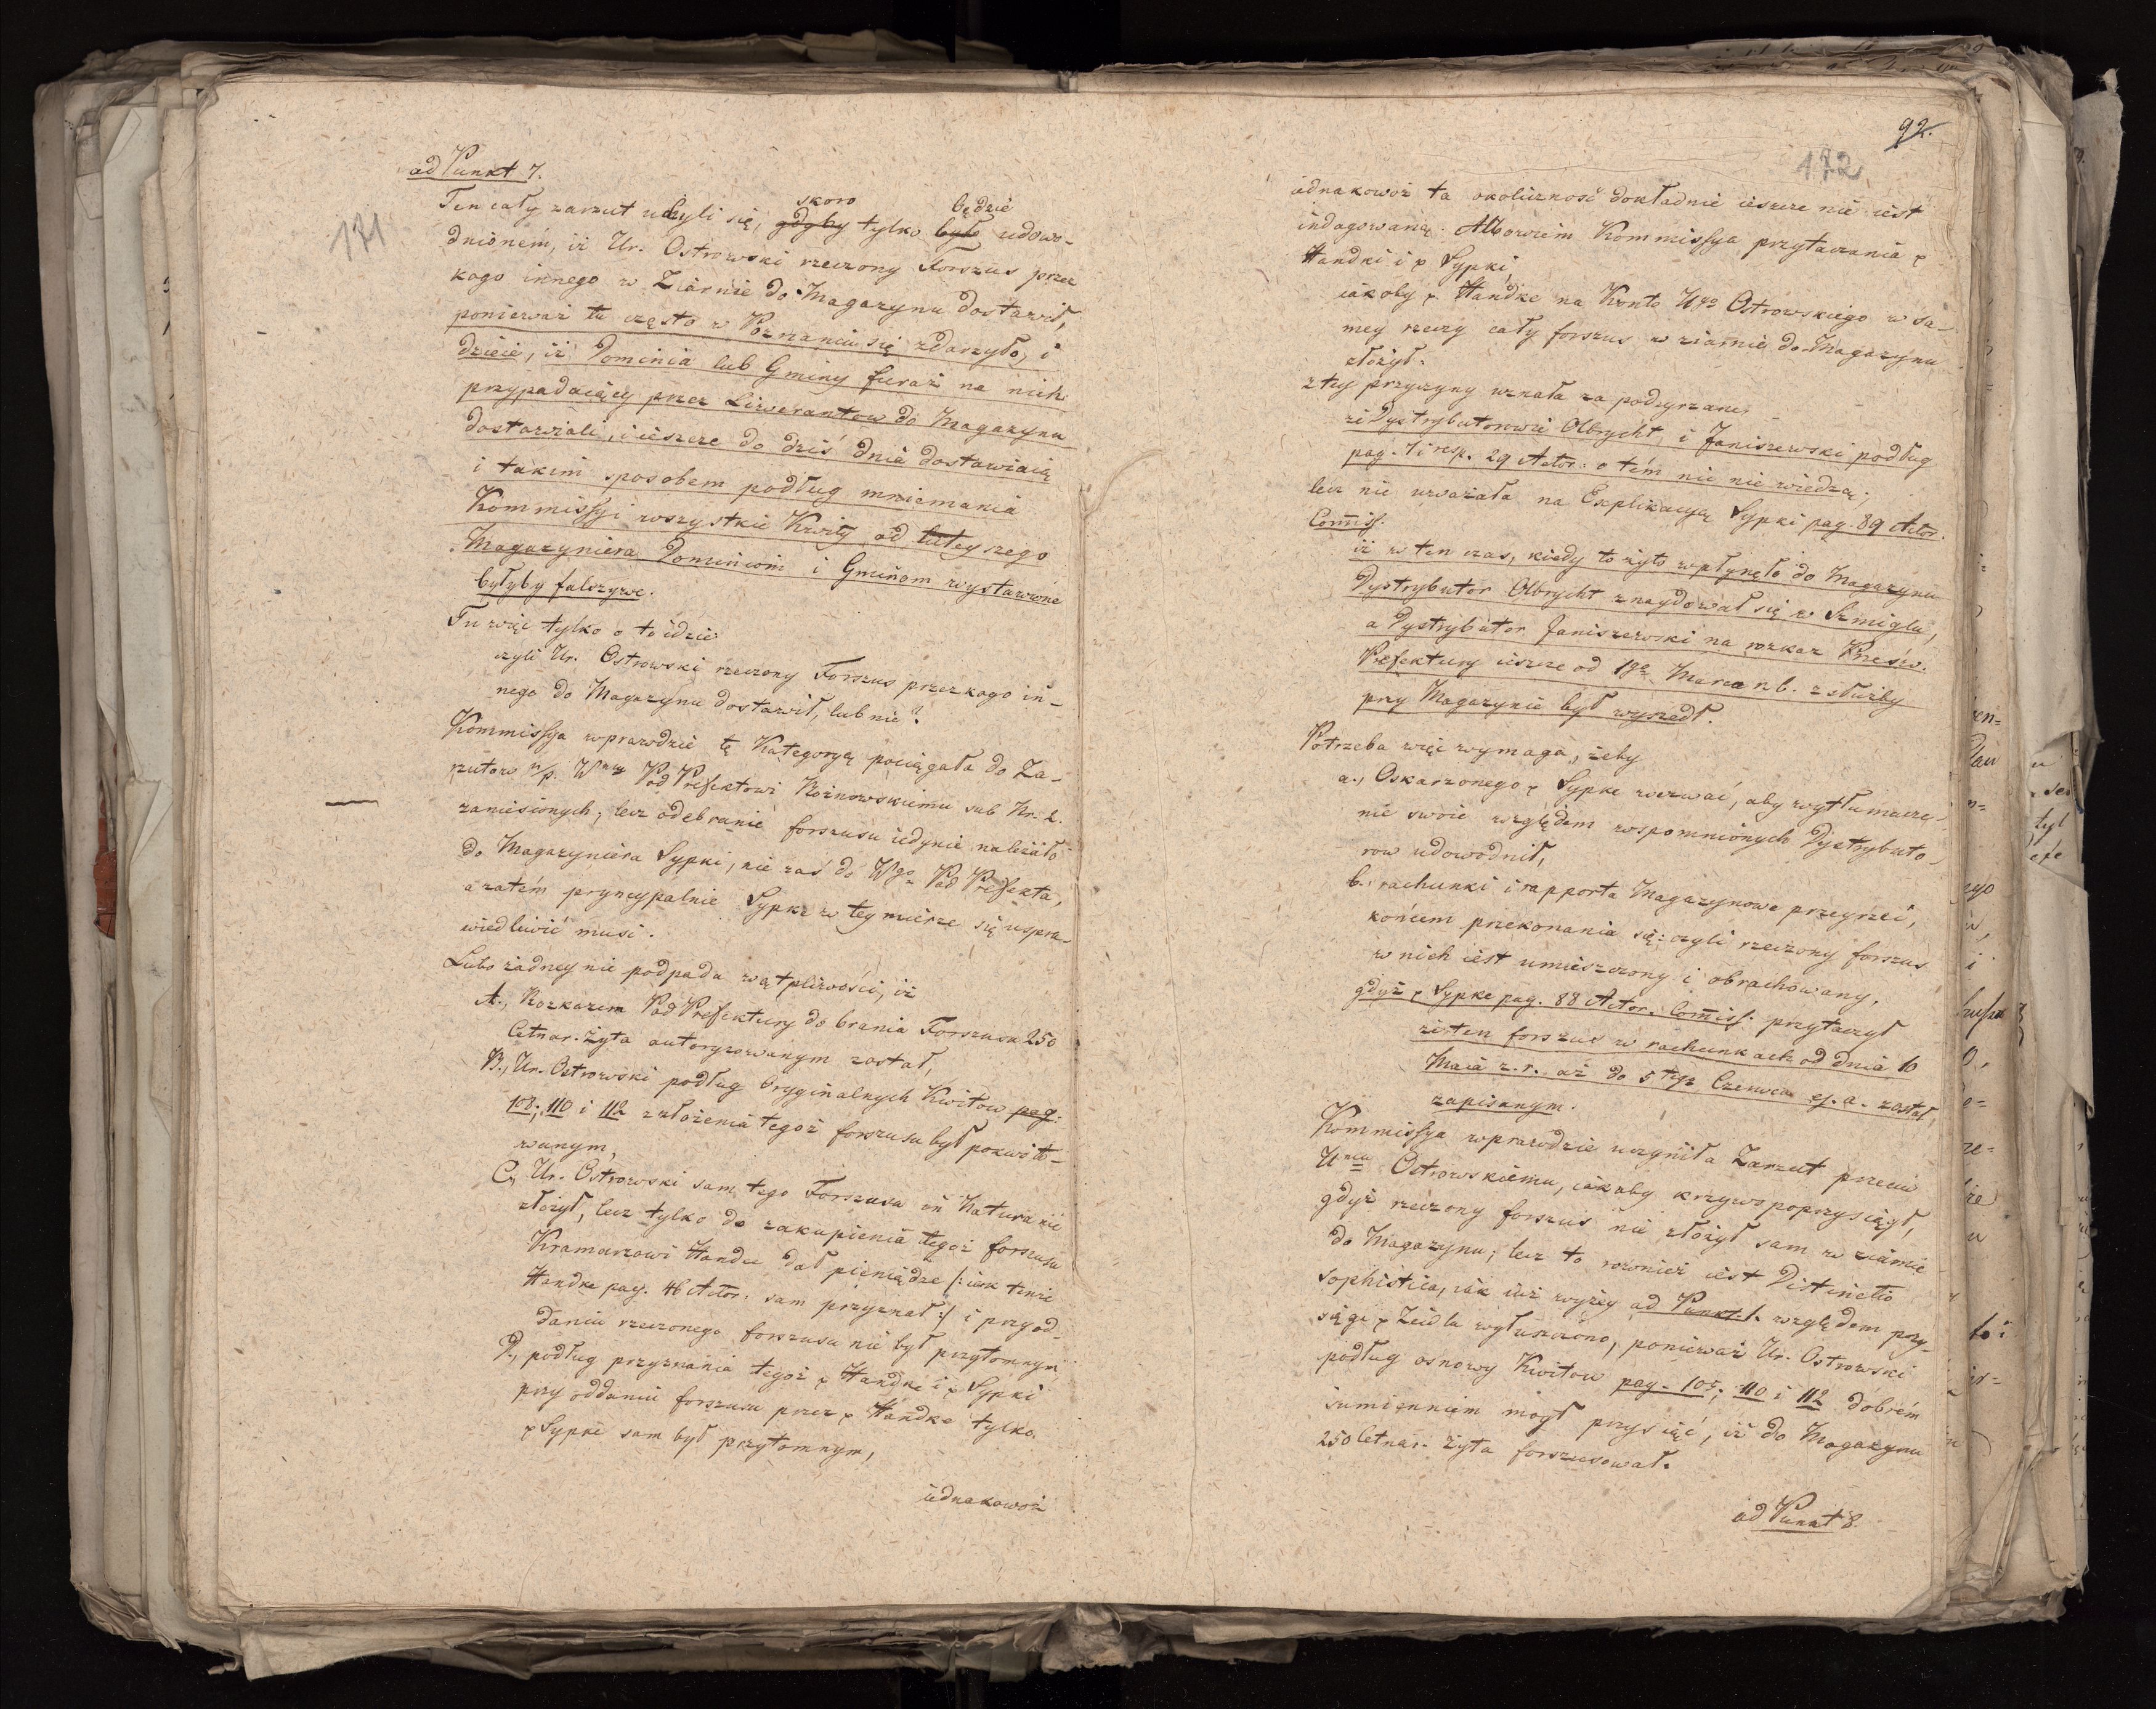 ad Punkt 7.
171
skoro będzie
Ten cały zarzut uchyli się, gdyby tylko było udowo-
dnionem, iż Ur. Ostrowski rzeczony Forszus przez
kogo innego w Ziarnie do Magazynu dostawił,
ponieważ tu często w Poznaniu się zdarzyło, i
dzieie, iż Dominia lub Gminy furaż na nich
przypadaiący przez Liwerantow do Magazynu
dostawiali, i ieszcze do dziś dnia dostawiaią
i takim sposobem podług mniemania
Kommissyi wszystkie Kwity od tuteyszego
Magazyniera Dominiom i Gminom wystawione
byłyby falszywe.
Tu więc tylko o to idzie
czyli Ur. Ostrowski rzeczony Forszus przez kogo in-
nego do Magazynu dostawił, lub nie?
Kommissya wprawdzie tę Kategoryą pociągała do Za-
rzutow n/p. Wmu Pod Prefektowi Rożnowskiemu sub Nr. 2.
zaniesionych, lecz odebranie forszusu iedynie należało
do Magazyniera Sypki, nie zaś do Wgo Pod Prefekta,
a zatém pryncypalnie Sypke w tey mierze się uspra-
wiedliwić musi.
Lubo żadney nie podpada wątpliwości, iż
A., Rozkazem Pod Prefektury do brania Forszusu 250
Cetnar. Żyta autoryzowanym został,
B., Ur. Ostrowski podług Oryginalnych Kwitow pag:
108; 110 i 112 złożenia tegoż forszusu był pokwito-
wanym,
C., Ur. Ostrowski sam tego Forszusu in Natura nie
złożył, lecz tylko do zakupienia tegoż forszusu
Kramarzowi Handke dał pieniądze /: iak tenże
Handke pag. 46 Actor: sam przyznał :/ i przy od-
daniu rzeczonego forszusu nie był przytomnym
D., podług przyznania tegoż p Handki i p Sypki
przy oddaniu forszusu przez p Handke tylko
p Sypke sam był przytomnym,
iednakowoż
92.
172
iednakowoż ta okoliczność dokładnie ieszcze nie iest
indagowaną. Albowiem Kommissya przytaczania p
Handki i p Sypki,
iakoby p. Handke na Konto Ugo Ostrowskiego w sa-
mey rzeczy cały forszus w ziarnie do Magazynu
złożył.
z tey przyczyny uznała za podeyrzane,
że Dystrybutorowie Olbrycht, i Janiszewski podług
pag. 7 i resp. 29 Actor: o tém nic nie wiedzą;
lecz nie uważała na Explikacyą Sypki pag. 89 Actor.
Com̄iss.
iż w ten czas, kiedy to żyto wpłynęło do Magazynu
Dystrybutor Olbrycht znaydował się w Szmiglu,
a Dystrybutor Janiszewski na rozkaz Prześw.
Prefektury ieszcze od 1go Marca r.b. z służby
przy Magazynie był wyszedł.
Potrzeba więc wymaga, żeby
a., Oskarżonego p Sypke wezwać, aby wytłumacze-
nie swoie względem wspomnionych Dystrybuto-
row udowodnił,
b., rachunki i rapporta Magazynowe przeyrzeć,
końcem przekonania się: czyli rzeczony forszus
w nich iest umieszczony i obrachowany,
gdyż p Sypke pag. 88 Actor. Com̄iss. przytaczył
że ten forszus w rachunkach od dnia 10
Maia z.r. aż do 5 tego Czerwca ej. a. został
zapisanym.
Kommissya wprawdzie uczyniła Zarzut przeciw
Umu Ostrowskiemu, iakoby krzywo poprzysiągł,
gdyż rzeczony forszus nie złożył sam w ziarnie
do Magazynu; lecz to rownież iest Distinctio
sophistica, iak iuż wyżey ad Punkt 1. względem przy-
sięgi p Zeidla wyłuszczono, ponieważ Ur. Ostrowski
podług osnowy Kwitow pag. 105; 110 i 112 dobrém
sumienniem mogł przysiądz, iż do Magazynu
250 Cetnar. żyta forszusował.
ad Punkt 8.